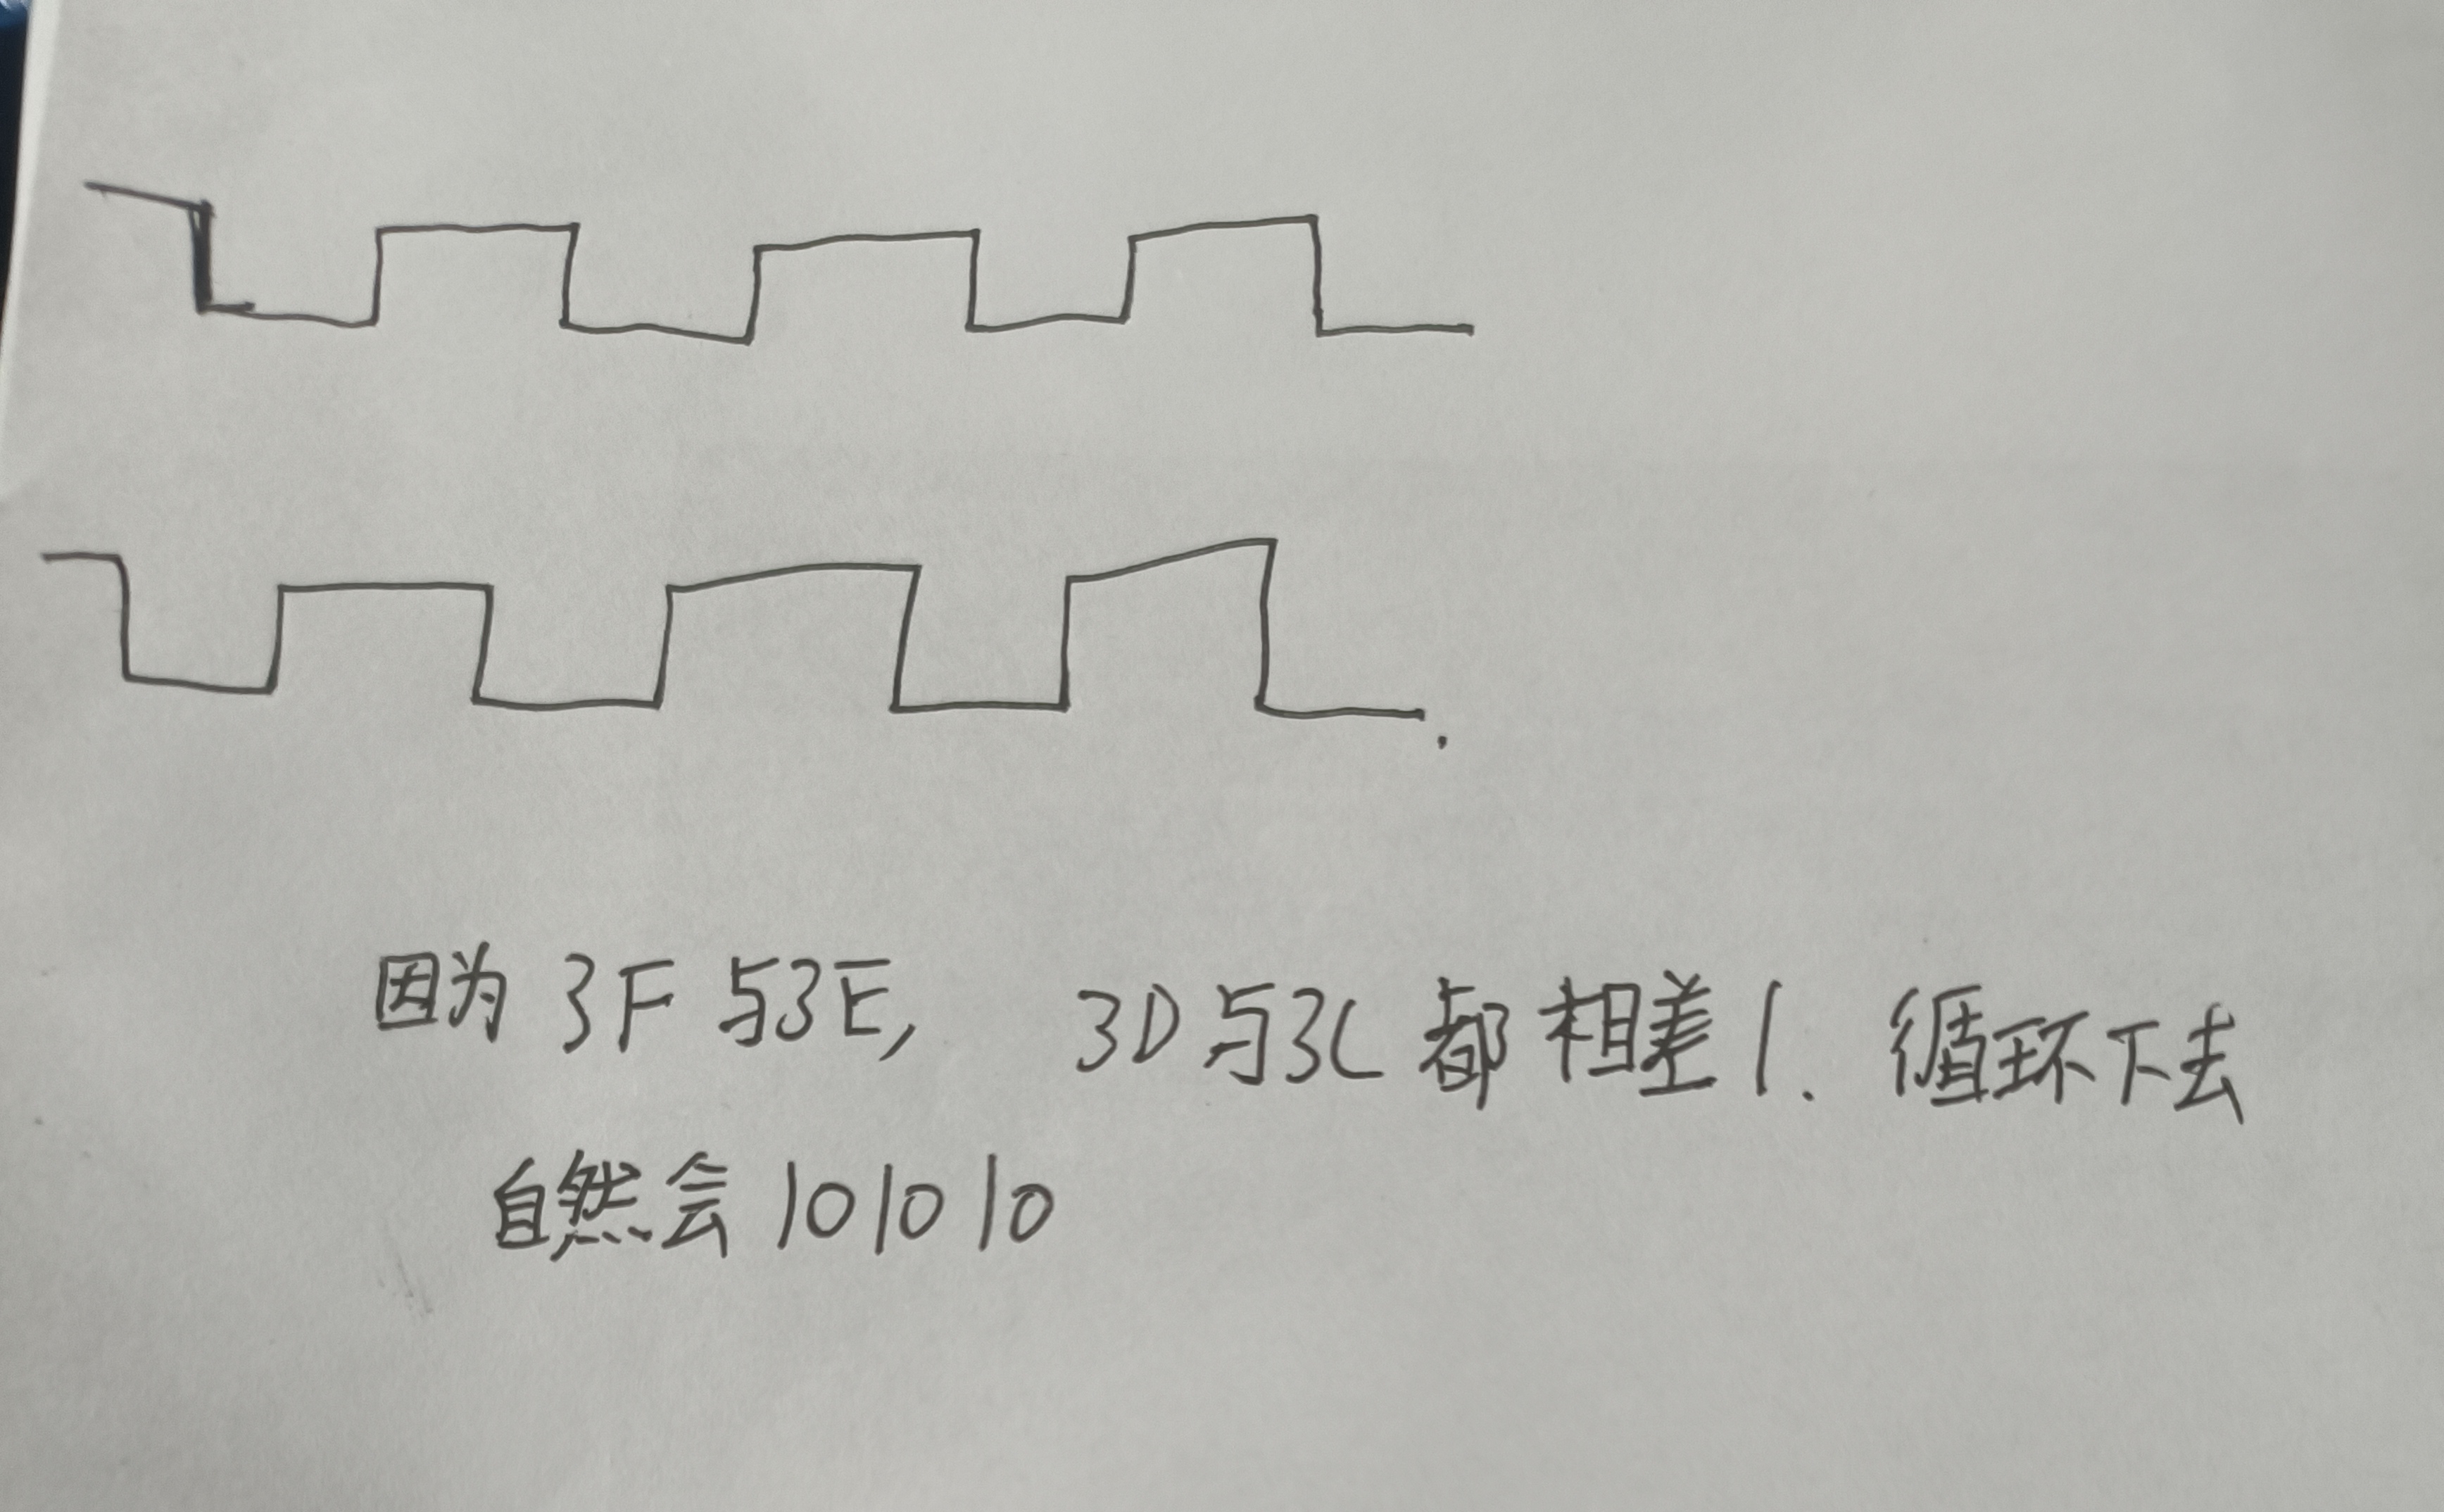 因为 3F 与3E, 3D与3C 都相差1. 循环下去
自然会 101010